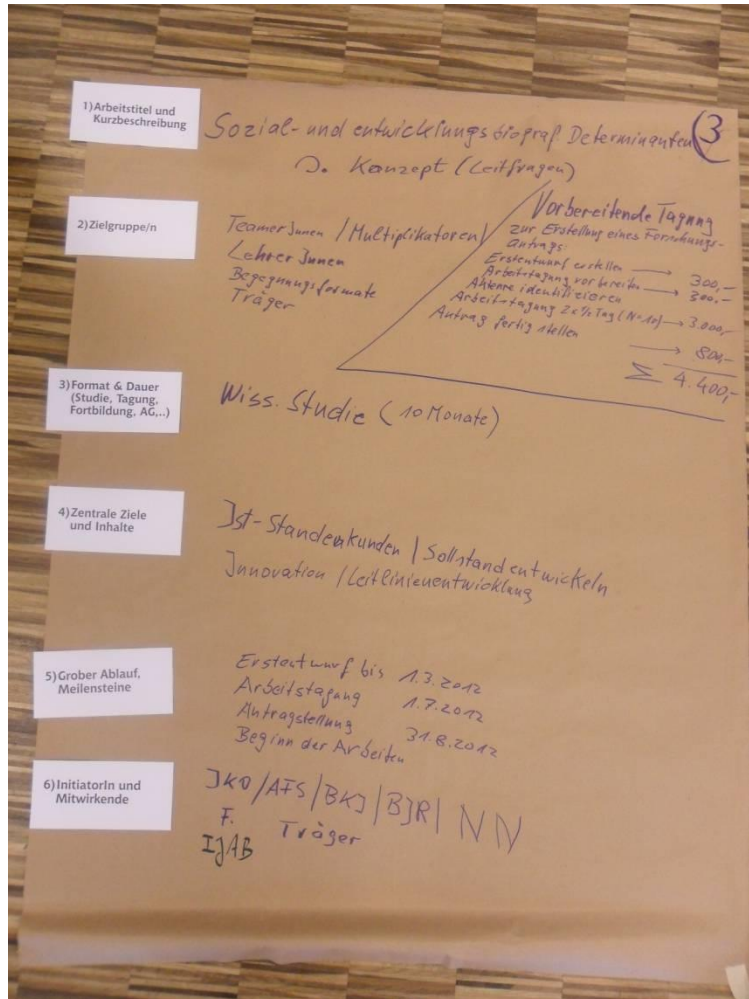 1) Arbeitstitel und
Kurzbeschreibung
Sozial- und entwicklungsbiograf Determinanten
3
Konzept (Leitfragen)
2) Zielgruppe/n
TeamerJnnen / Multiplikatoren
LehrerJnnen
Begegnungsformate
Träger
Vorbereitende Tagung
zur Erstellung eines Forschungs-
antrags
Erstentwurf erstellen → 300,-
Arbeitstagung vorbereiten → 300,-
Akteure identifizieren
Arbeitstagung 2x½ Tag (N=10) → 3.000,-
Antrag fertig stellen → 800,-
Σ 4.400,-
3) Format & Dauer
(Studie, Tagung,
Fortbildung, AG,..)
Wiss. Studie (10 Monate)
4) Zentrale Ziele
und Inhalte
Jst-Stand erkunden / Sollstand entwickeln
Jnnovation / Leitlinienentwicklung
5) Grober Ablauf,
Meilensteine
Erstentwurf bis 1.3.2012
Arbeitstagung 1.7.2012
Antragstellung 31.8.2012
Beginn der Arbeiten
6) InitiatorIn und
Mitwirkende
JKD / AFS / BKJ / BJR / NN
F. Träger
IJAB